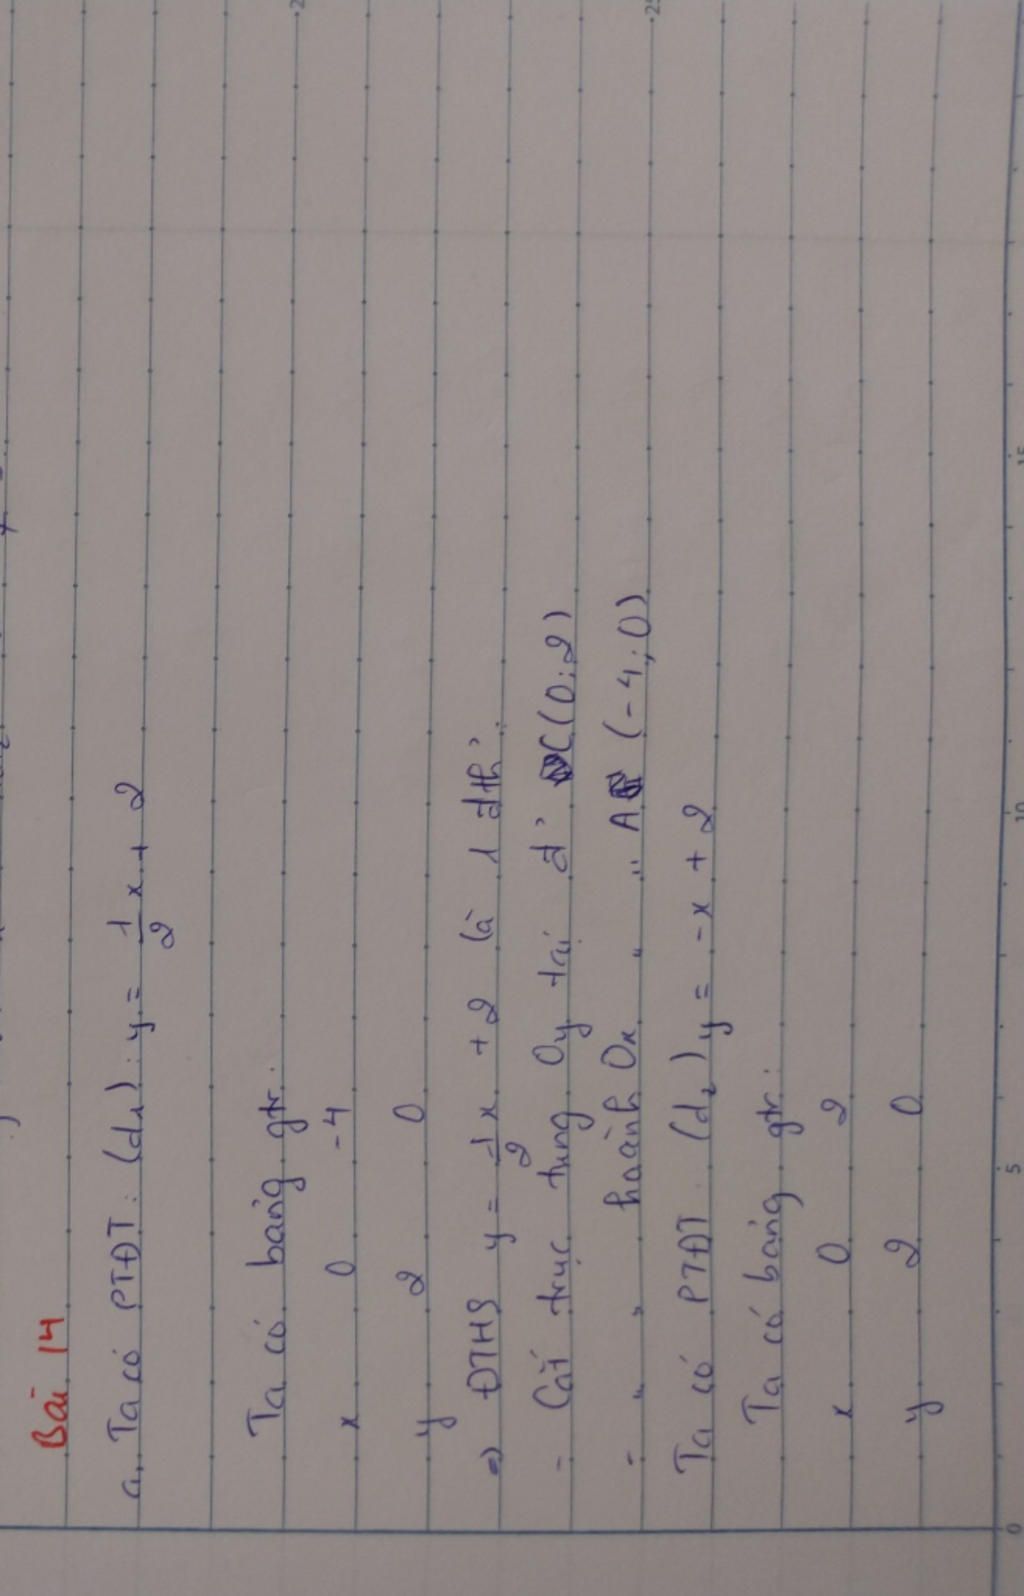 Bài 14
a, Ta có PTĐT: (d₁): y = 1/2 x + 2
Ta có bảng gtr:
x 0 -4
y 2 0
=> ĐTHS y = 1/2 x + 2 là 1 đth̉:
- Cắt trục tung Oy tại đ̉ C(0;2)
- " " hoành Ox " " A (-4;0)
Ta có PTĐT (d₂) y = -x + 2
Ta có bảng gtr:
x 0 2
y 2 0